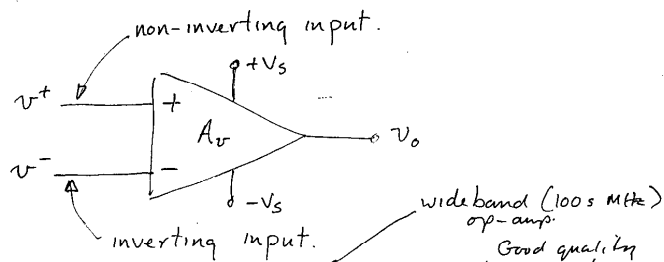 non-inverting input.
+Vs
v+
+
Av
vo
v-
-
-Vs
inverting input.
wideband (100s MHz)
op-amp.
Good quality